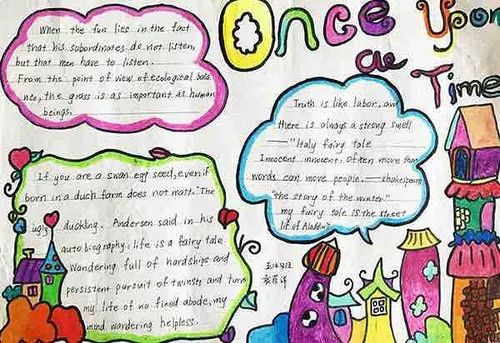 Once Upon
a
Time
When the fun lies in the fact
that his subordinates do not listen,
but that men have to listen
From the point of view of ecological bala
nce, the grass is as important as human
beings.
Truth is like labor, an
there is always a strong smell
— "Italy fairy tale
Innocent innocent, often more than
words can move people.—shakespeare
"the story of the winter"
my fairy tale is the street
of Aladdin
If you are a swan egg seed, even if
born in a duch farm does not matt. "The
ugly duckling. Andersen said in his
autobiography: life is a fairy tale
Wandering full of hardships and
persistent pursuit of twists and turn
my life of no fixed abode, my
mind wandering helpless.